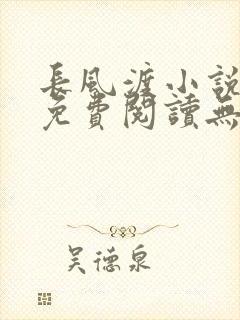 長風渡小說
免費閱讀無
吴德泉